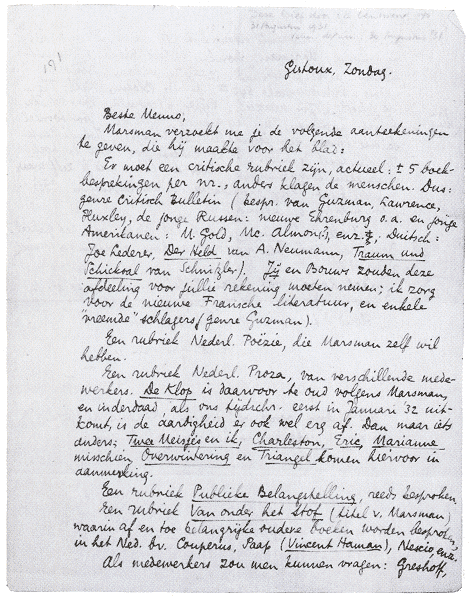 Gistoux, Zondag.
Beste Menno,
Marsman verzoekt me je de volgende aanteekeningen
te geven, die hij maakte voor het blad:
Er moet een critische rubriek zijn, actueel: ± 5 boek-
besprekingen per nr., anders klagen de menschen. Dus:
genre Critisch Bulletin (bespr. van Guzman, Lawrence,
Huxley, de jonge Russen: nieuwe Ehrenburg o.a. en jonge
Amerikanen: M. Gold, Mc. Almon?, enz. Duitsch:
Joe Lederer, Der Held van A. Neumann, Traum und
Schicksal van Schnitzler). Jij en Bouws zouden deze
afdeeling voor jullie rekening moeten nemen; ik zorg
voor de nieuwe Fransche literatuur, en enkele
"vreemde" schlagers (genre Guzman).
Een rubriek Nederl. Poëzie, die Marsman zelf wil
hebben.
Een rubriek Nederl. Proza, van verschillende mede-
werkers. De Klop is daarvoor te oud volgens Marsman,
en inderdaad, als ons tijdschr. eerst in Januarie 32 uit-
komt, is de aardigheid er ook wel erg af. Dan maar iets
anders; Twee Meisjes en ik, Charleston, Eric, Marianne
misschien, Overwintering en Triangel komen hiervoor in
aanmerking.
Een rubriek Publieke Belangstelling, reeds besproken.
Een rubriek Van onder het Stof (titel v. Marsman)
waarin af en toe belangrijke oudere boeken worden besproken,
in het Ned. bv. Couperus, Paap (Vincent Haman), Nescio enz.
Als medewerkers zou men kunnen vragen: Greshoff,